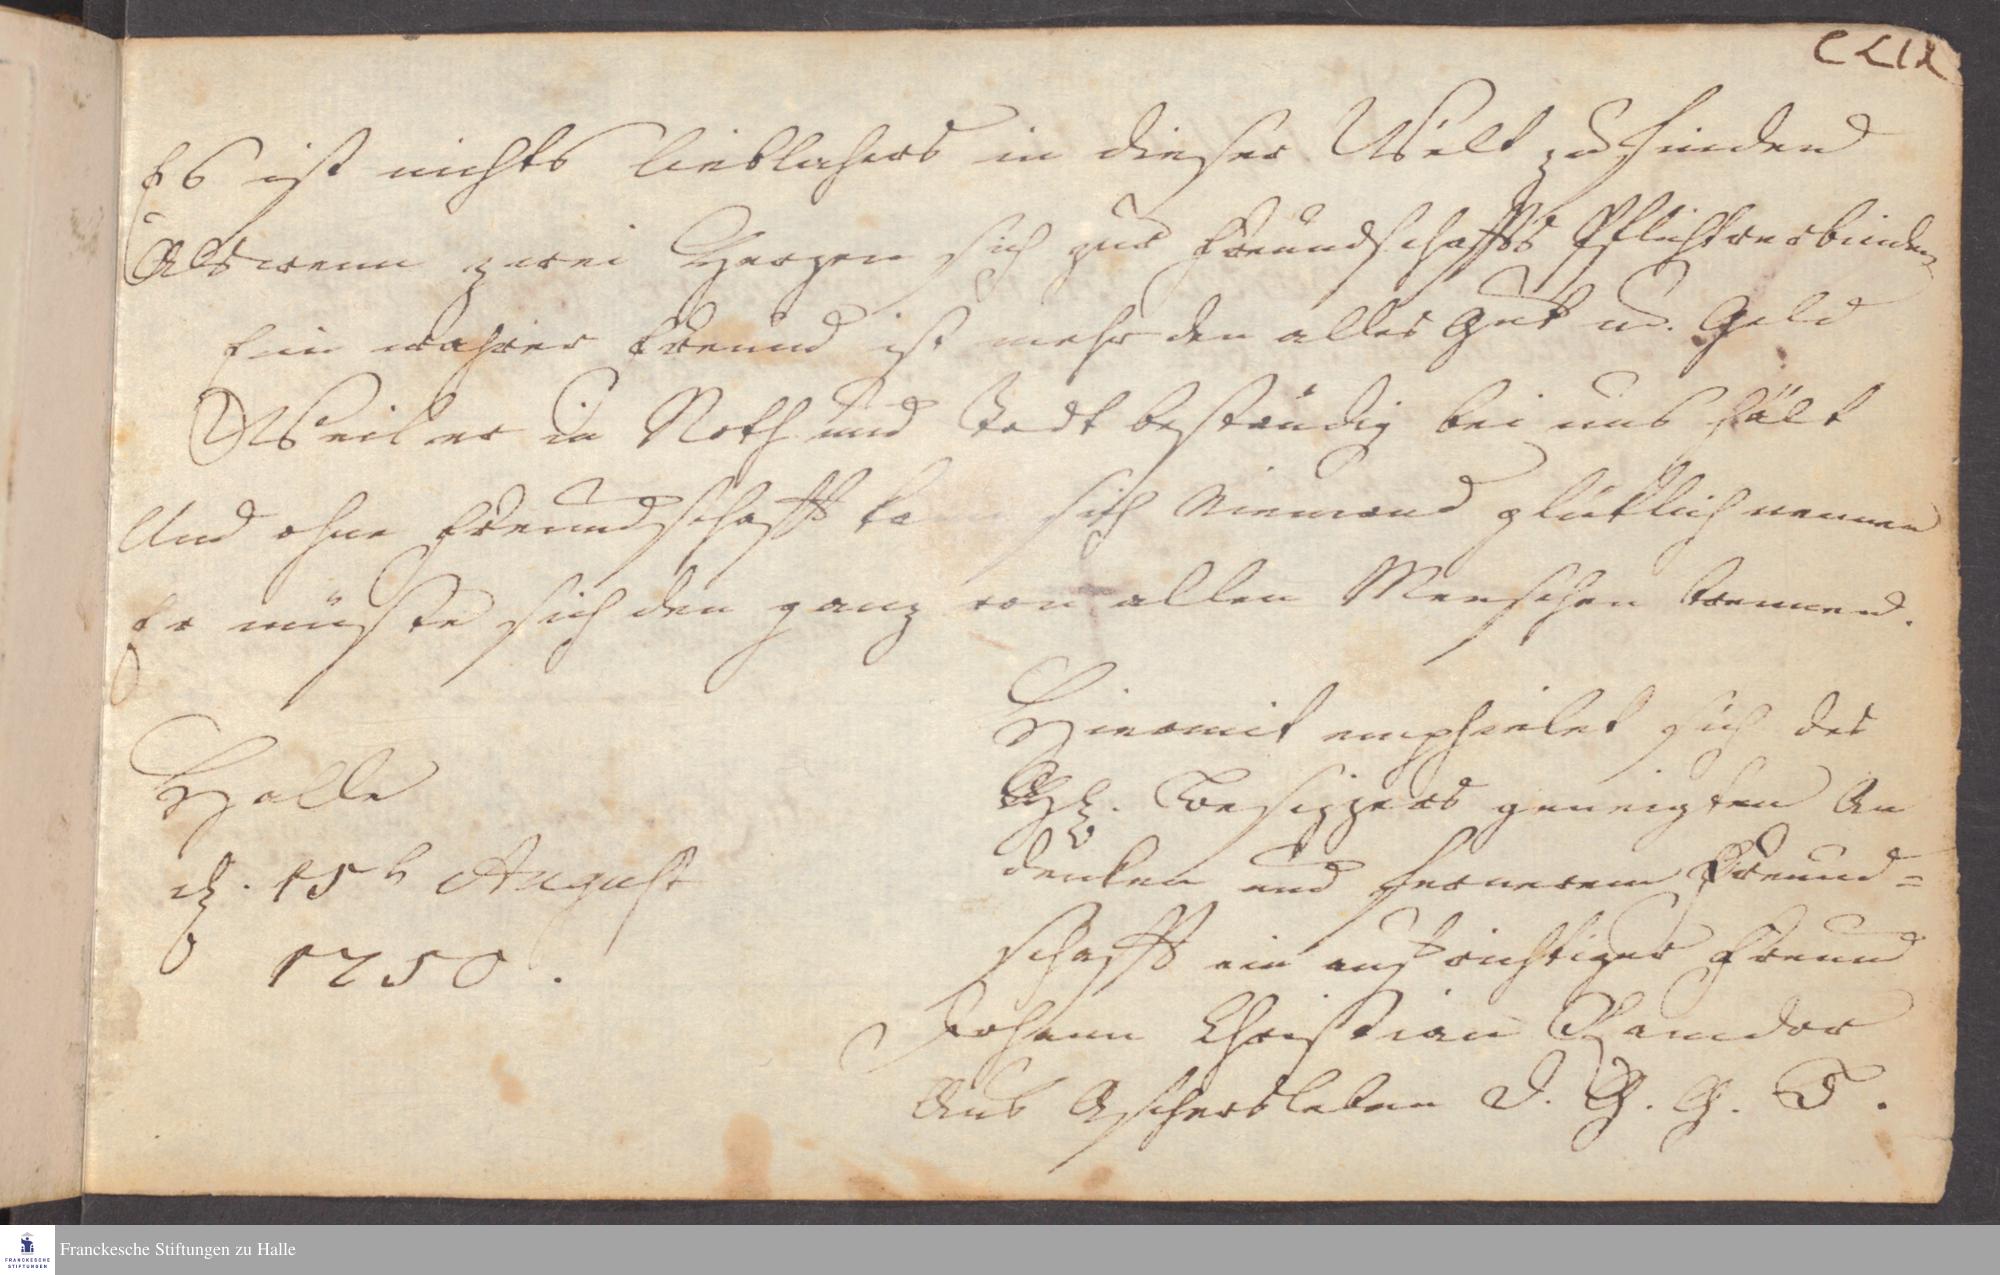 CLIX
Es ist nichts lieblichers in dieser Welt zu finden
Als wenn zwei Herzen sich zur Freundschaffts Pflicht verbinden
Ein wahrer Freund ist mehr den alles Gut u. Geld
Weil er in Noth und Todt beständig bei uns hält
Und ohne Freundschafft kan sich Niemand glücklich nennen
Er müste sich den ganz von allen Menschen trennen.
Halle
d. 15 August
1750.
Hiermit emphielet sich des
H. Besizzers geneigten An
denken und fernerem Freund=
schafft ein aufrichtiger Freund
Johann Christian
Aus Aschersleben D. G. G. B.
Franckesche Stiftungen zu Halle
FRANCKESCHE
STIFTUNGEN